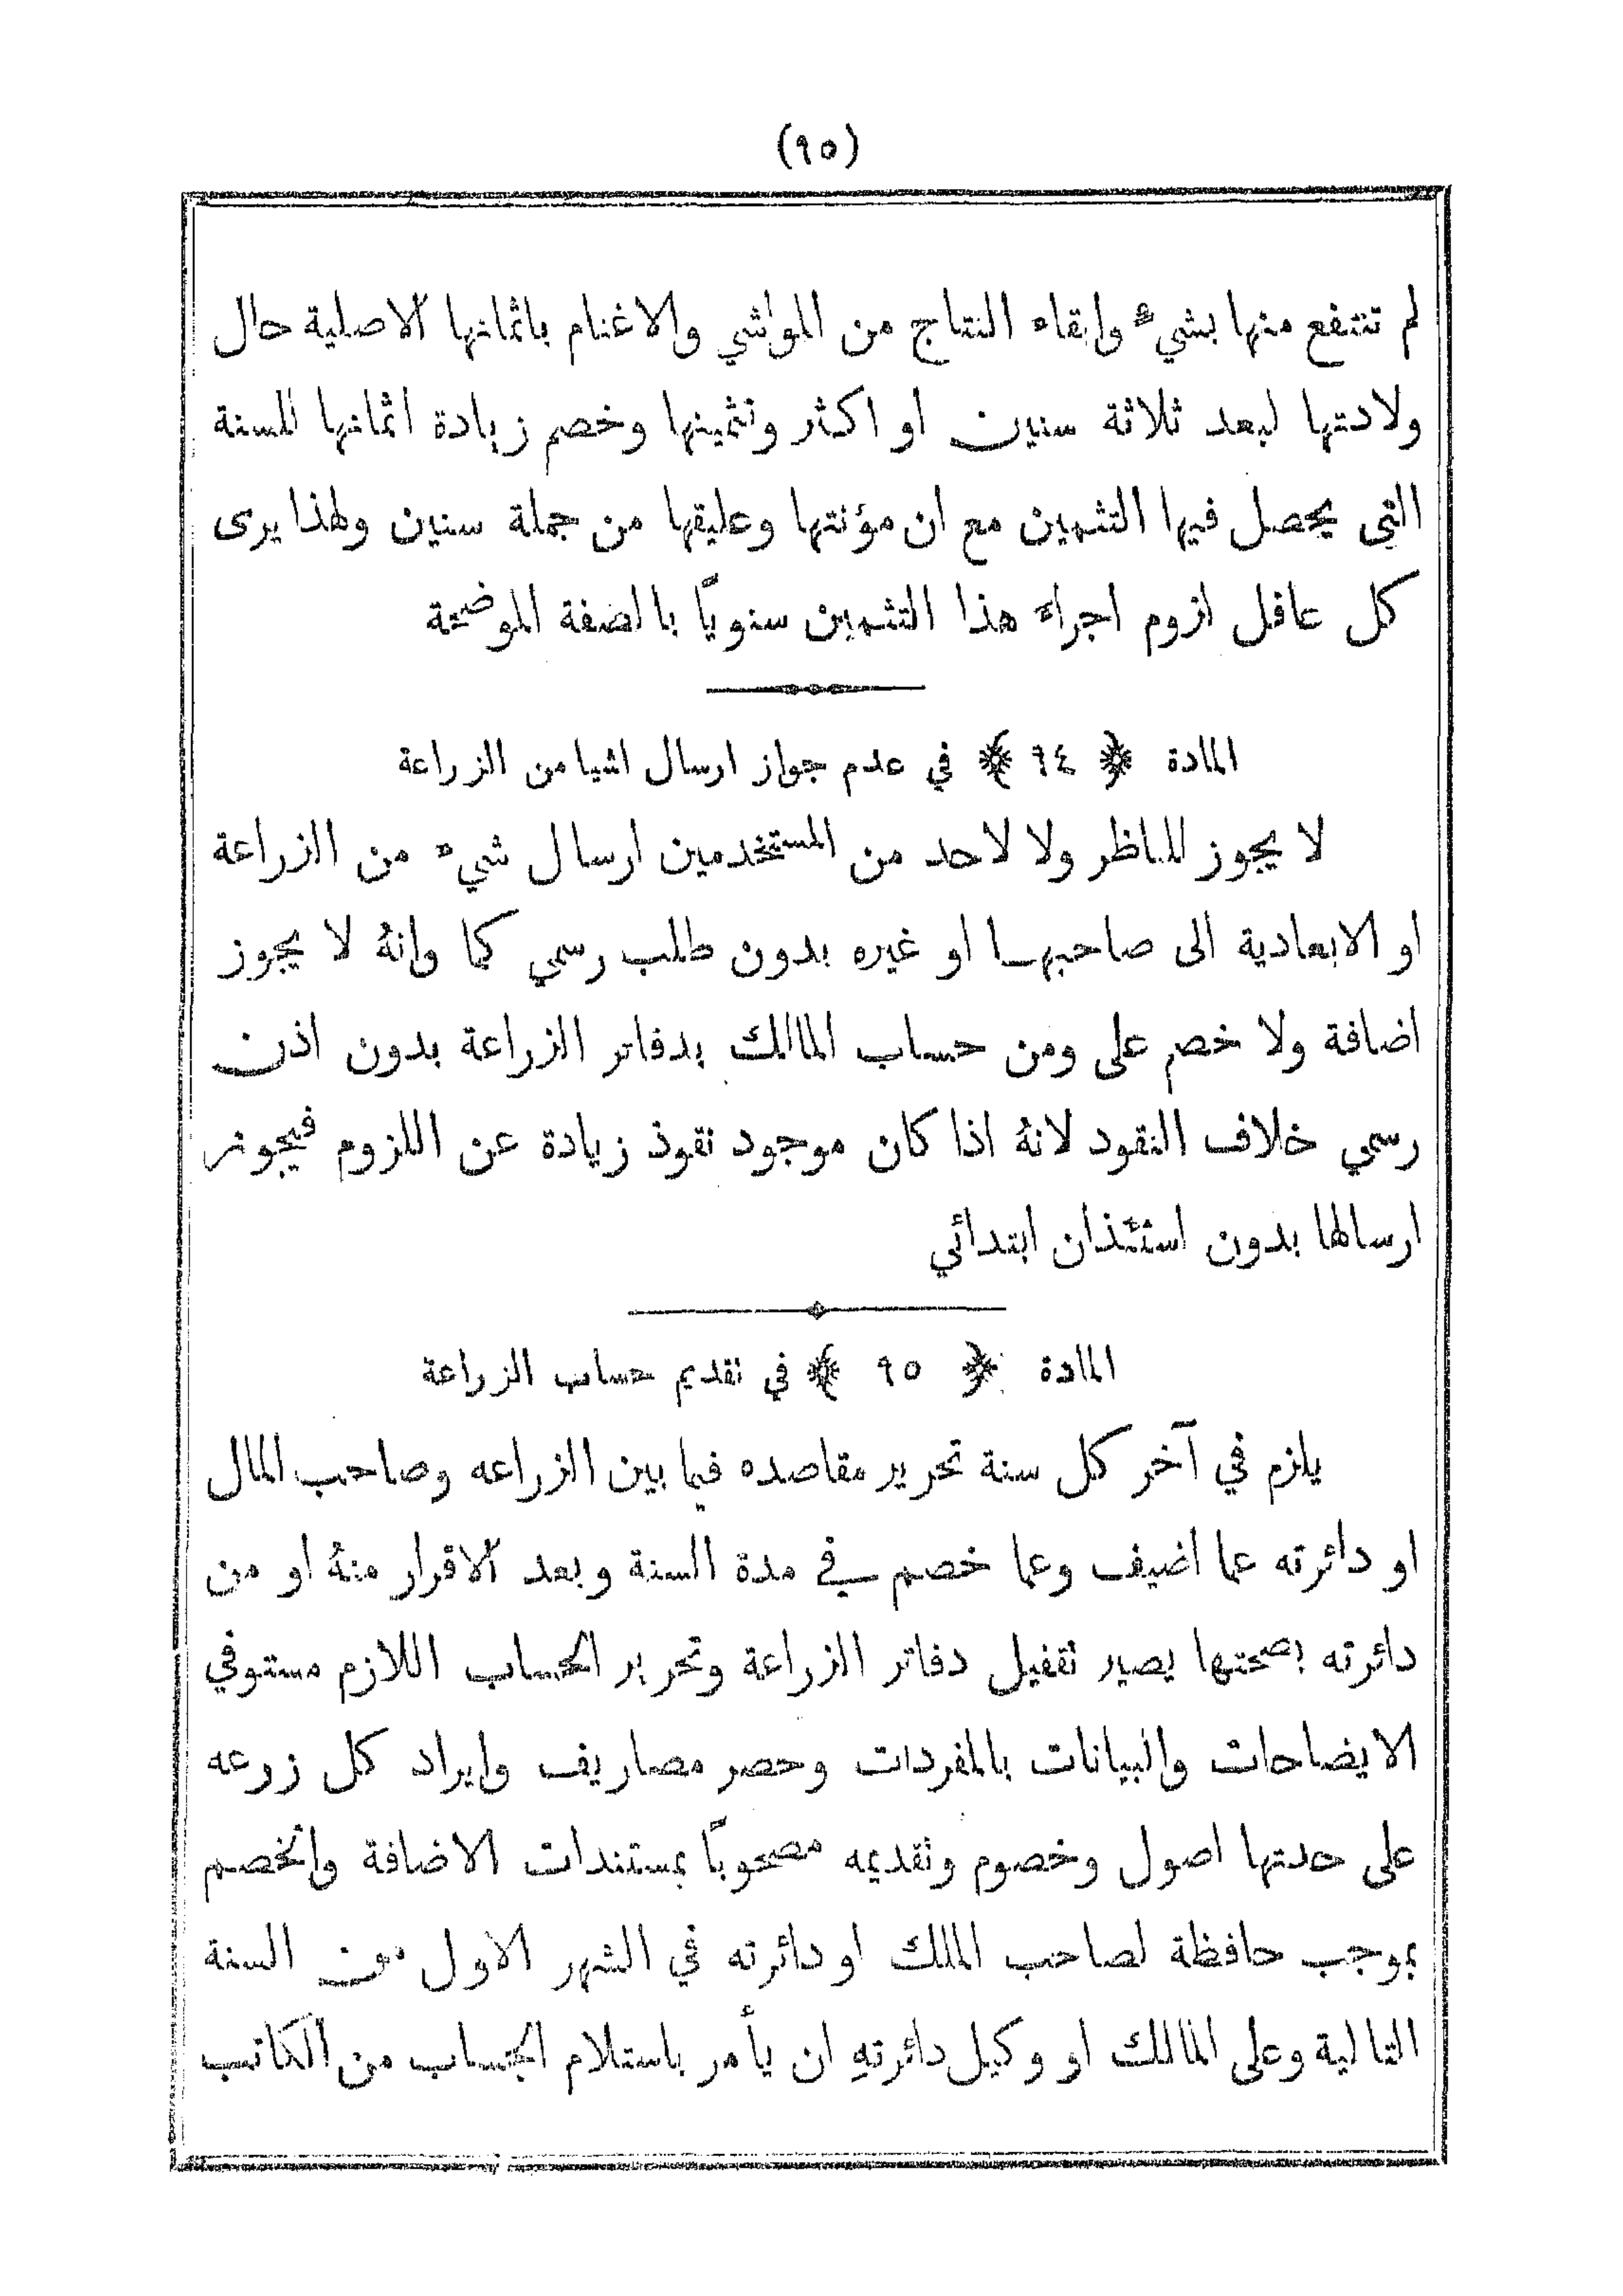 (٩٥)
لم تنتفع منها بشيءٍ وابقاء النتاج من المواشي والاغنام باثمانها الاصلية حال
ولادتها لبعد ثلاثة سنين او اكثر وتثمينها وخصم زيادة اثمانها للسنة
التي يحصل فيها التثمين مع ان مؤنتها وعليقها من جملة سنين ولهذا يرى
كل عاقل لزوم اجراء هذا التثمين سنويًا بالصفة الموضحة
المادة ﴿ ٩٤ ﴾ في عدم جواز ارسال اشيا من الزراعة
لا يجوز للناظر ولا لاحد من المستخدمين ارسال شيء من الزراعة
او الابعادية الى صاحبها او غيره بدون طلب رسمي كما وانهُ لا يجوز
اضافة ولا خصم على ومن حساب المالك بدفاتر الزراعة بدون اذن
رسمي خلاف النقود لانهُ اذا كان موجود نقوذ زيادة عن اللزوم فيجوز
ارسالها بدون استئذان ابتدائي
المادة ﴿ ٩٥ ﴾ في تقديم حساب الزراعة
يلزم في آخر كل سنة تحرير مقاصده فيما بين الزراعه وصاحب المال
او دائرته عما اضيف وعما خصم في مدة السنة وبعد الاقرار منهُ او من
دائرته بصحتها يصير تقفيل دفاتر الزراعة وتحرير الحساب اللازم مستوفي
الايضاحات والبيانات بالمفردات وحصر مصاريف وايراد كل زرعه
على حدتها اصول وخصوم وتقديمه مصحوبًا بمستندات الاضافة والخصم
بموجب حافظة لصاحب الملك او دائرته في الشهر الاول من السنة
التالية وعلى المالك او وكيل دائرتهِ ان يأمر باستلام الحساب من الكاتب